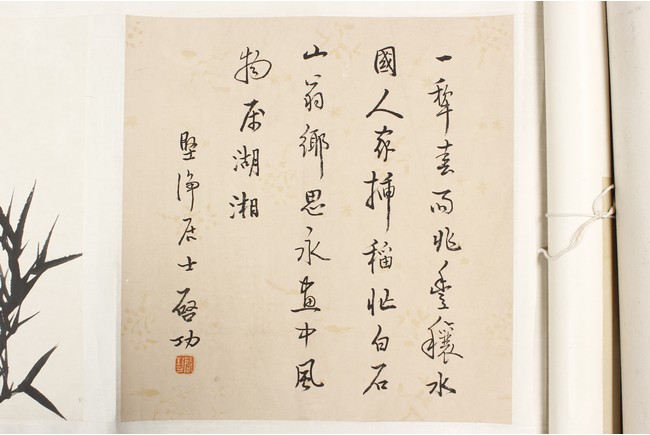 一犂喜雨兆豐穰水
國人家插稻忙白石
山翁鄉思永畫中風
物属湖湘
堅淨居士啓功